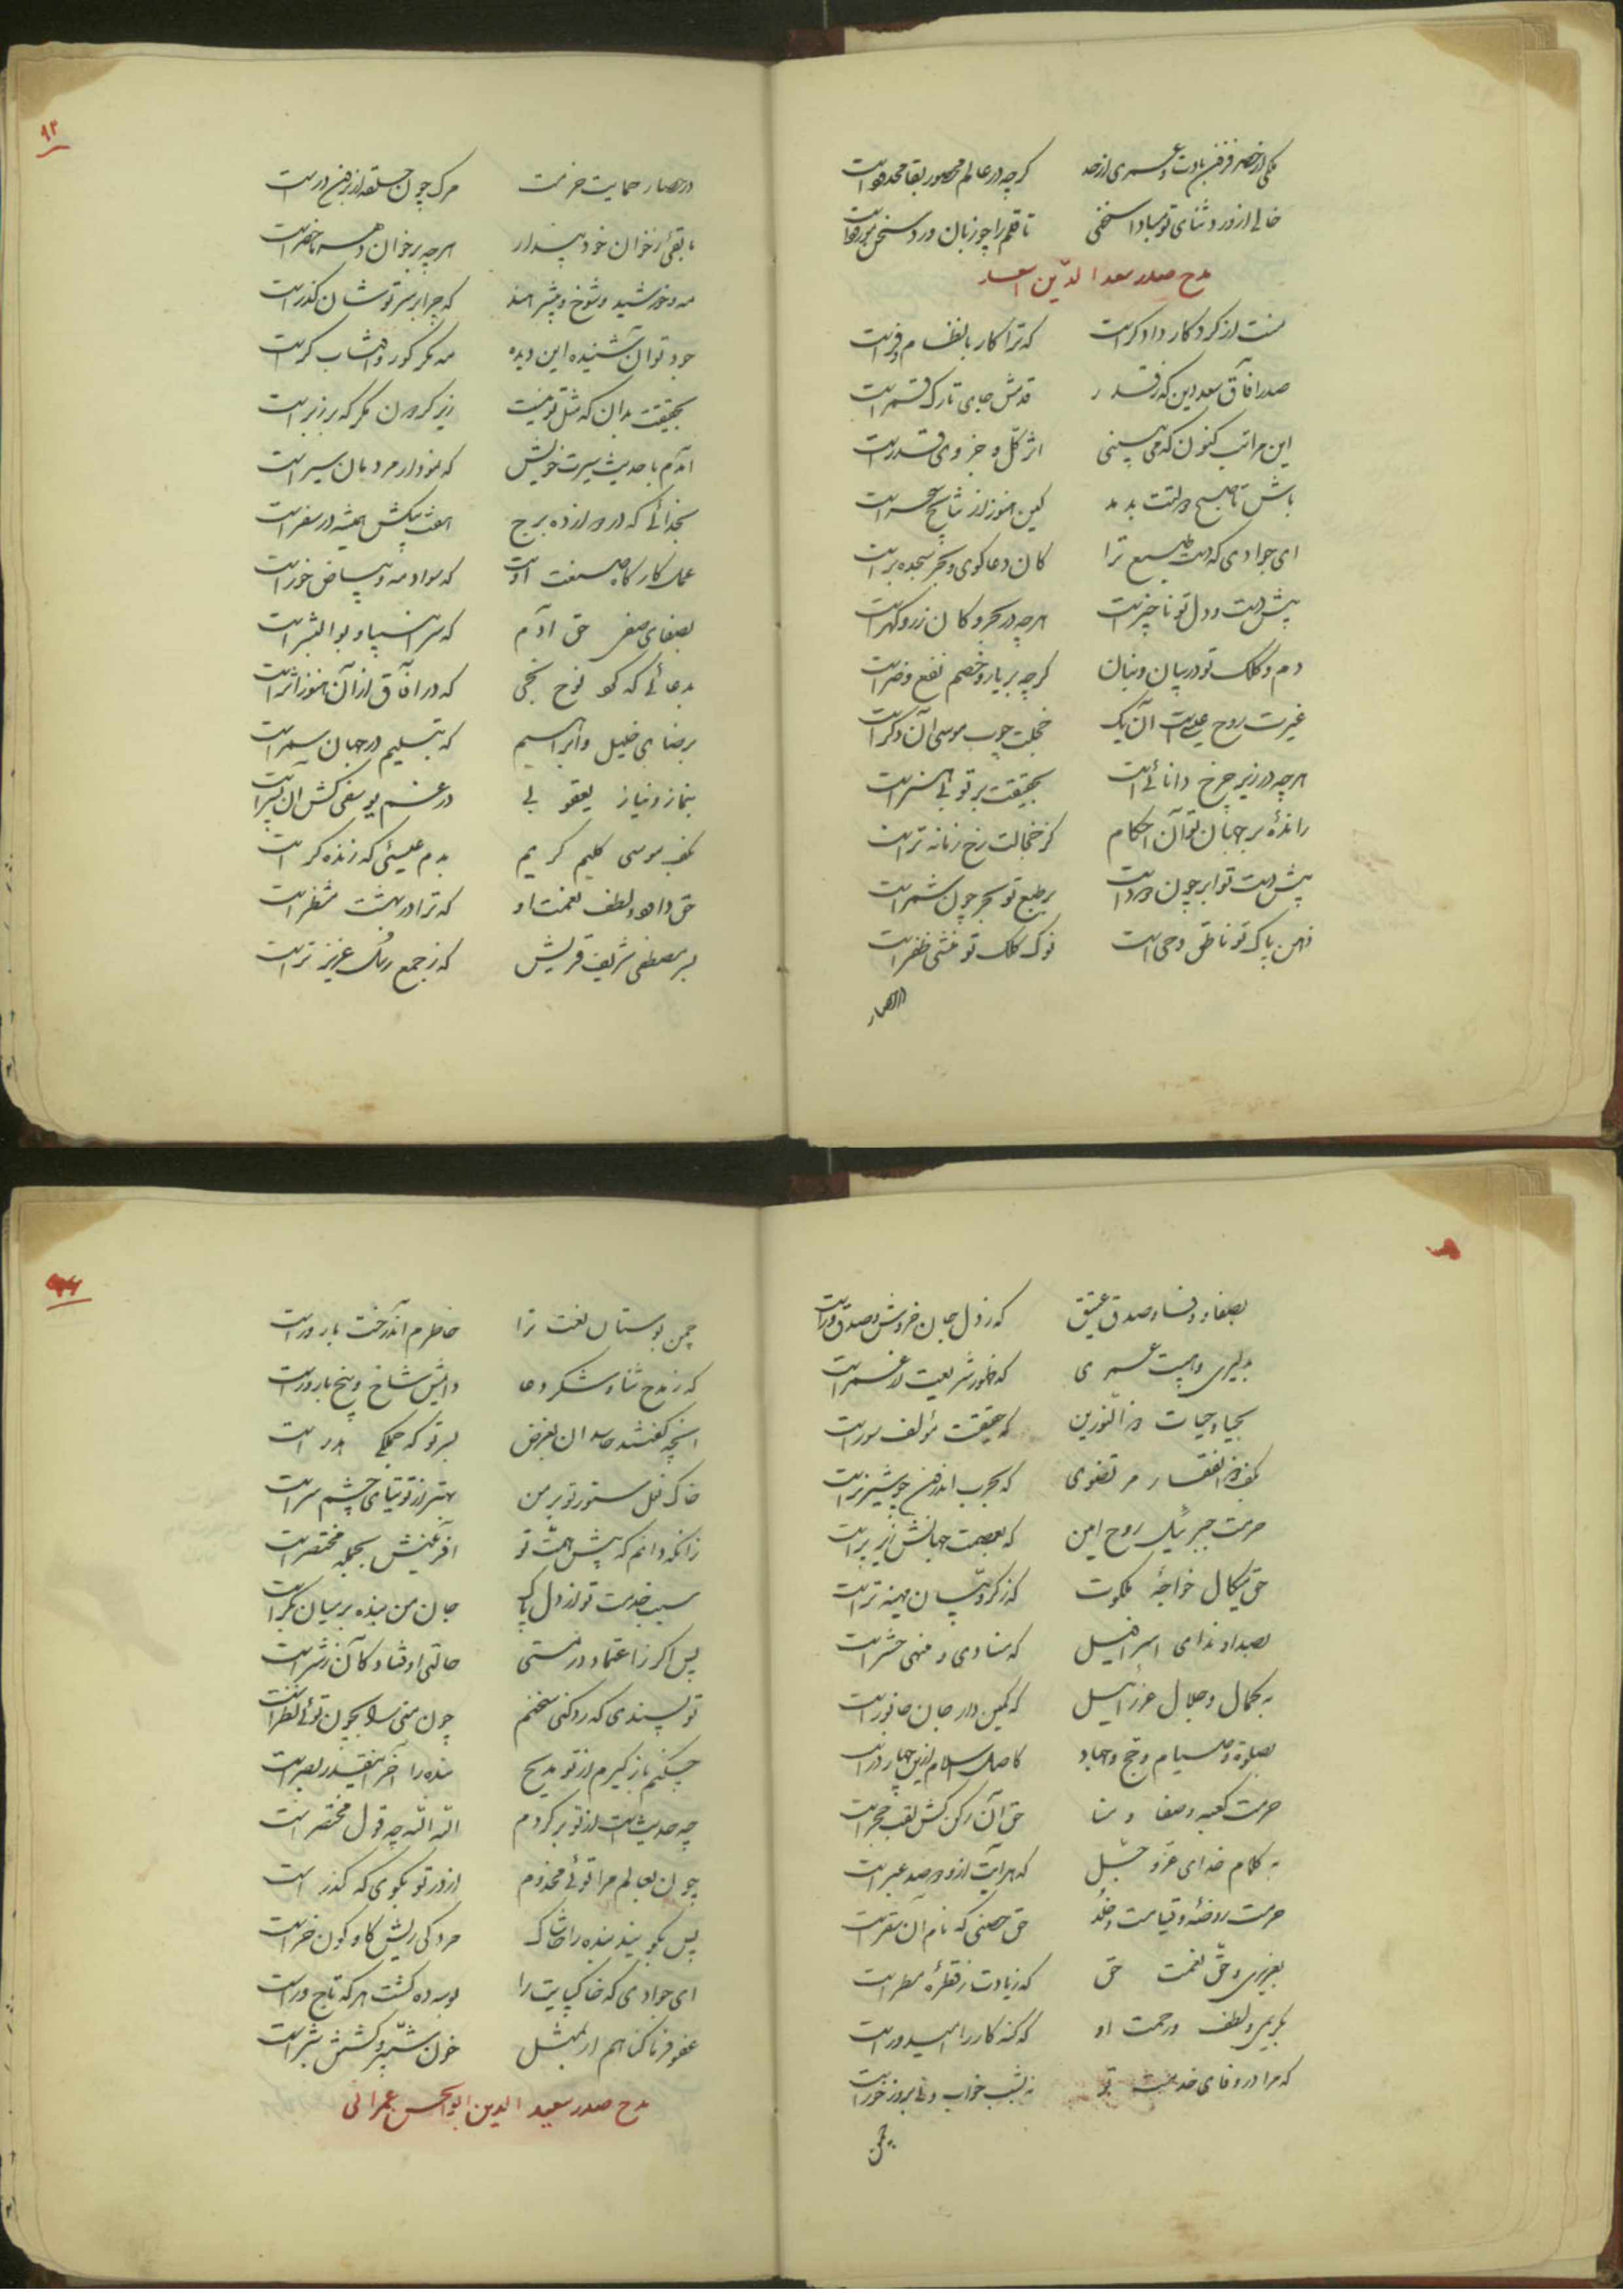 ملکی از خضر فزون بادت و عمری از حد گرچه در عالم محصور بقا محدود است
خالی از ورد ثنای تو مبادا سخنی تا قلم را چو زبان ورد سخن مورود است
مدح صدر سعد الدین اسعد
منت از کردکار دادکر است که ترا کار با نظام و فر است
صدر آفاق سعد دین که ز قدر قدمش جای تارک قمر است
این مراتب کنون که می بینی اثر کل و جزوی قدر است
باش تا صبح دولتت بدمد کین هنوز از نتایج سحر است
ای جوادی که دست طبع ترا کان دعاکوی و بحر سجده بر است
پیش دست و دل تو ناچیز است هرچه در بحر و کان زر و کهر است
دم و کلک تو در بیان و بنان گرچه بر یار و خصم نفع و ضر است
غیرت روح عیسی است آن یک خجلت چوب موسی آن دکر است
هرچه در زیر چرخ دانائیست بحقیقت بر تو بی هنر است
رانده بر جهان تو آن احکام کز خجالت رخ زمانه تر است
پیش دست تو ابر چون دود است بر طبع تو بحر چون شمر است
ذهن پاک تو ناطق وحی است نوک کلک تو منشی ظفر است
در حصار
۹۳
در حصار حمایت حرمت مرک چون حلقه از برون در است
ما بقی ز خوان خود پندار هرچه بر خوان دهر ما حضر است
مه و خورشید و شوخ و بیشرمند که چرا بر سر توشان کذر است
جود تو آن شنیده این دیده مه مکر کور و آفتاب کر است
بحقیقت بدان که مثل تو نیست زیر کردون مکر که بر زبر است
آمدم با حدیث سیرت خویش که نمودار مردمان سیر است
بخدائی که در دوازده برج هفت پیکش همیشه در سفر است
عمل کارکاه صنعت اوست که سواد مه و بیاض خور است
بصفای صفی حق آدم که سر انبیا و بوالبشر است
بدعائی که کرد نوح نجی که در آفاق از آن هنوز اثر است
برضای خلیل و ابراهیم که بتسلیم در جهان سمر است
بنماز و نیاز یعقوبی در غم یوسفی کش آن پسر است
بکف موسی کلیم کریم بدم عیسئی که زنده کر است
حق داود و لطف نعمت او که ترا در بهشت منتظر است
بسر مصطفی شریف قریش که ز جمع رسل عزیزتر است
بصفا و وفا و صدق عتیق که ز دل جان فروش و صدق ور است
بدلیری و هیبت عمری که ظهور شریعت از عمر است
بحیا و حیات ذو النورین که حقیقت مؤلف سور است
بکف و ذو الفقار مرتضوی که بحرب اندرون چو شیر نر است
حرمت جبرئیل روح امین که بعصمت جهانش زیر پر است
حق میکال خواجه ملکوت که ز کروبیان مهینه تر است
بصدا و ندای اسرافیل که منادی و منهی حشر است
به کمال و جلال عزرائیل که کمین دار جان جانور است
بصلوة و صیام و حج و جهاد کاصل اسلام ازین چهار در است
حرمت کعبه و صفا و منا حق آن رکن کش لقب حجر است
به کلام خدای عز و جل که هر آیت ازو دو صد عبر است
حرمت روضه و قیامت و خلد حق حصنی که نام آن سقر است
بعزیزی و حق نعمت حق که زیادت ز قطره مطر است
بکریمی و لطف و رحمت او که کنه کار را امیدور است
که مرا در وفای خدمت تو نه بشب خواب و نی بروز خور است
چمن
چمن بوستان نعت ترا خاطرم آن درخت بارور است
که ز مدح و ثنا و شکر و دعا دایمش شاخ و بیخ بارور است
آنچه کفتند حاسدان بغرض بسر تو که جملکی هدر است
خاک نعل ستور تو بر من بهتر از توتیای چشم سر است
زانکه دانم که پیش همت تو آفرینش بجمله مختصر است
سبب خدمت تو از دل پاک جان من بنده بر میان کمر است
پس اکر ز اعتماد در مستی حالتی اوفتاد کان ز شر است
تو پسندی که رد کنی سخنم چون منی را بچون توئی نظر است
چکنم باز کیرم از تو مدیح بنده را آخر اینقدر بصر است
چه حدیث است از تو برکردم الله الله چه قول مختصر است
چون بعالم مرا توئی مخدوم از در تو بکوی که کذر است
پس بکویند بنده را حاشاک مردکی ریش کاو کون خر است
ای جوادی که خاک پایت را بوسه ده کشت هر که تاجور است
عفو فرما کناهم ار بمثل خون شبیر و کشتن شبر است
مدح صدر سعید الدین ابو الحسن عمرانی